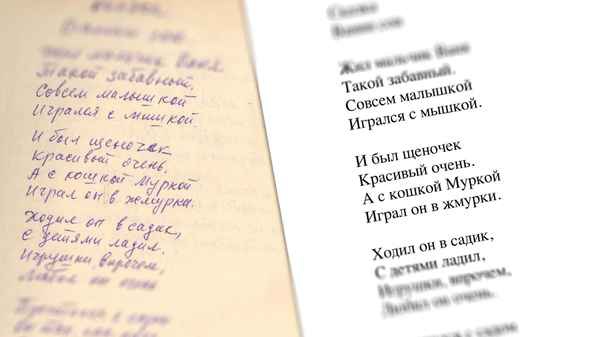 Сказка
Ванин сон
Жил мальчик Ваня
Такой забавный,
Совсем малышкой
Игрался с мышкой.
И был щеночек
Красивый очень.
А с кошкой Муркой
Играл он в жмурки.
Ходил он в садик,
С детями ладил.
Игрушки, впрочем,
Любил он очень
Сказка
Ванин сон
Жил мальчик Ваня
Такой забавный.
Совсем малышкой
Игрался с мышкой.
И был щеночек
Красивый очень.
А с кошкой Муркой
Играл он в жмурки.
Ходил он в садик,
С детями ладил,
Игрушки, впрочем,
Любил он очень.
с садом